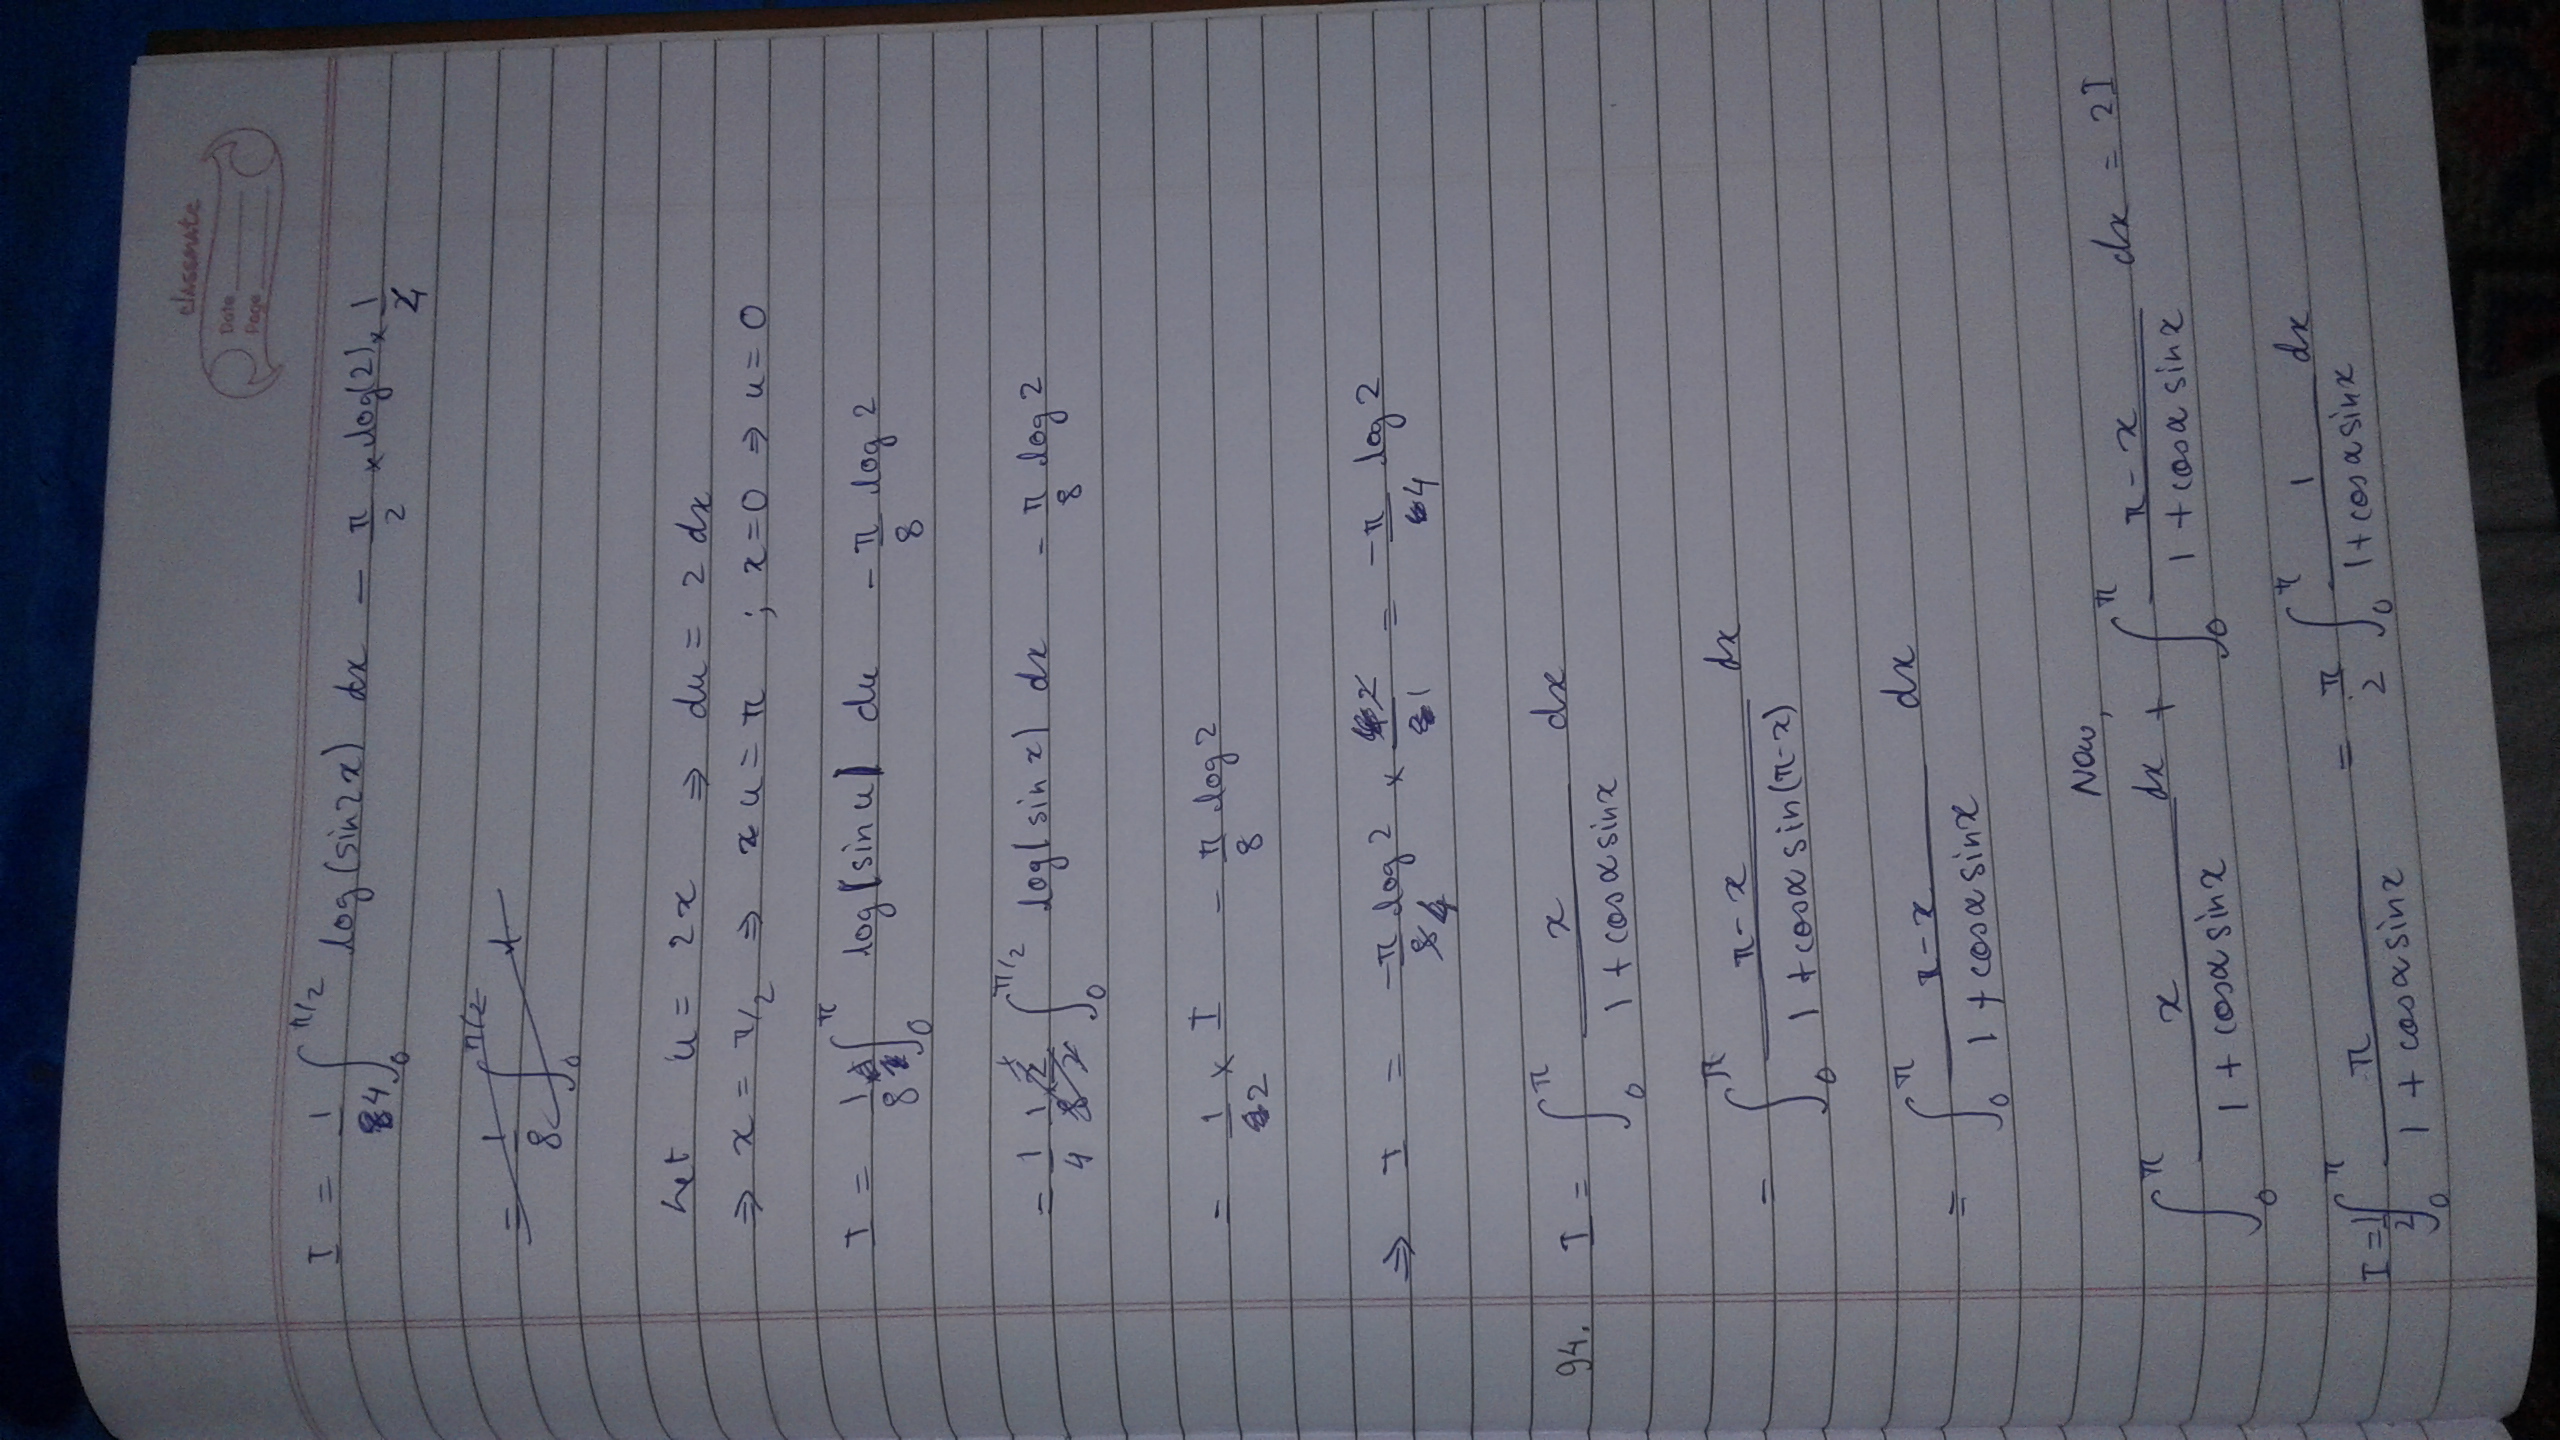 classmate
Date
Page
I = 1/4 ∫₀^π/2 log(sin2x) dx − π/2 × log(2) × 1/4
= 1/8 ∫₀^π/2
Let u = 2x ⇒ du = 2 dx
⇒ x = π/2 ⇒ u = π ; x=0 ⇒ u = 0
I = 1/8 ∫₀^π log(sin u) du − π/8 log 2
= 1/4 ∫₀^π/2 log(sin x) dx − π/8 log 2
= 1/2 × I − π/8 log 2
⇒ I = −π/8 log 2 × 2/1 = −π/4 log 2
94. I = ∫₀^π x/(1 + cosα sinx) dx
= ∫₀^π (π−x)/(1 + cosα sin(π−x)) dx
= ∫₀^π (π−x)/(1 + cosα sinx) dx
Now,
∫₀^π x/(1 + cosα sinx) dx + ∫₀^π (π−x)/(1 + cosα sinx) dx = 2I
I = 1/2 ∫₀^π π/(1 + cosα sinx) = π/2 ∫₀^π 1/(1+cosα sinx) dx